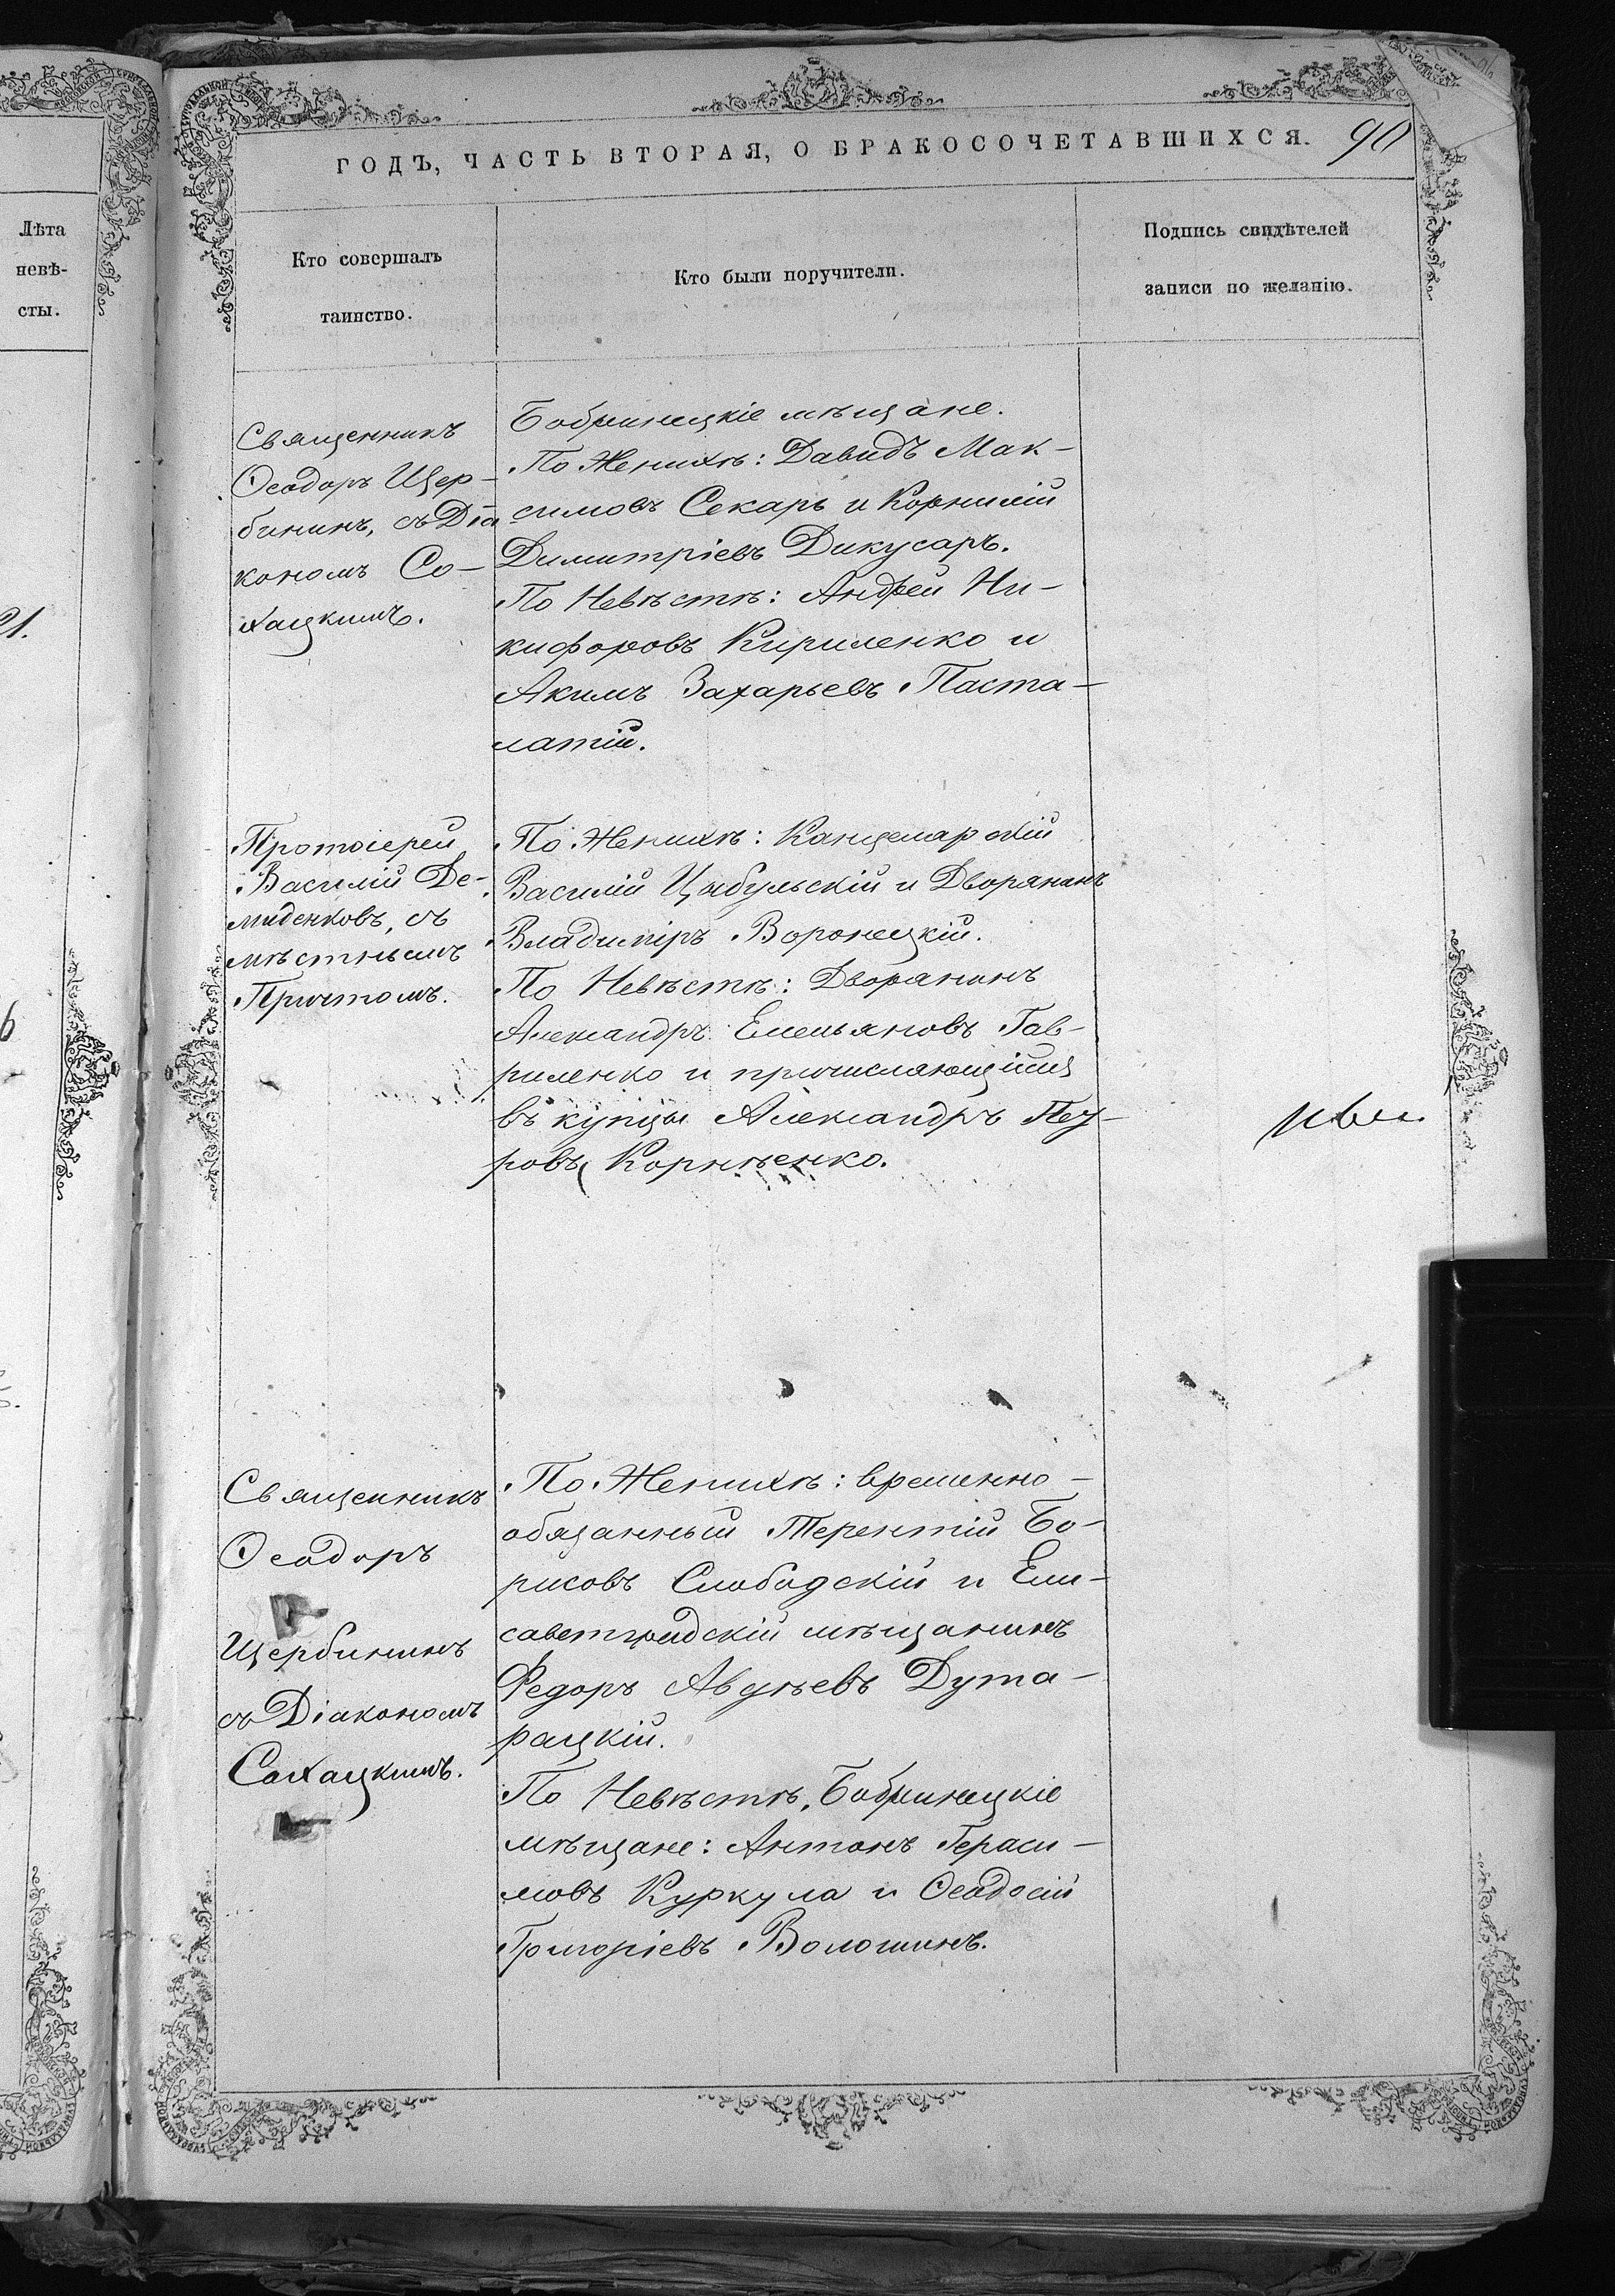 ГОДЪ, ЧАСТЬ ВТОРАЯ, О БРАКОСОЧЕТАВШИХСЯ. 90
Лѣта
невѣ-
сты.
21.
Кто совершалъ
таинство.
Кто были поручители.
Подпись свидѣтелей
записи по желанію.
Священникъ
Ѳеодоръ Щер-
бининъ, съ Діа
кономъ Со-
хацкимъ.
Бобринецкіе мѣщане.
По Женихѣ: Давидъ Мак-
симовъ Секарь и Корнилій
Димитріевъ Дикусаръ.
По Невѣстѣ: Андрей Ни-
кифоровъ Кириленко и
Акимъ Захарьевъ Паста-
латій.
Протоіерей
Василій Де-
миденковъ, съ
мѣстнымъ
Причтомъ.
По Женихѣ: Канцелярскій
Василій Цыбульскій и Дворянинъ
Владиміръ Воронецкій.
По Невѣстѣ: Дворянинъ
Александръ Емельяновъ Гав-
риленко и причисляющійся
въ купцы Александръ
ровъ Корнѣенко.
Священникъ
Ѳеодоръ
Щербининъ
съ Діакономъ
Сохацкимъ.
По Женихѣ: временно-
обязанный Терентій Бо-
рисовъ Слободскій и Ели-
саветградскій мѣщанинъ
Федоръ Авдѣевъ Дума-
рацкій.
По Невѣстѣ, Бобринецкіе
мѣщане: Антонъ Гераси-
мовъ Куркула и Ѳеодосій
Григоріевъ Волошинъ.